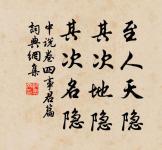 至人天隐
其次地隐
其次名隐
中说卷四事君篇
词典网集